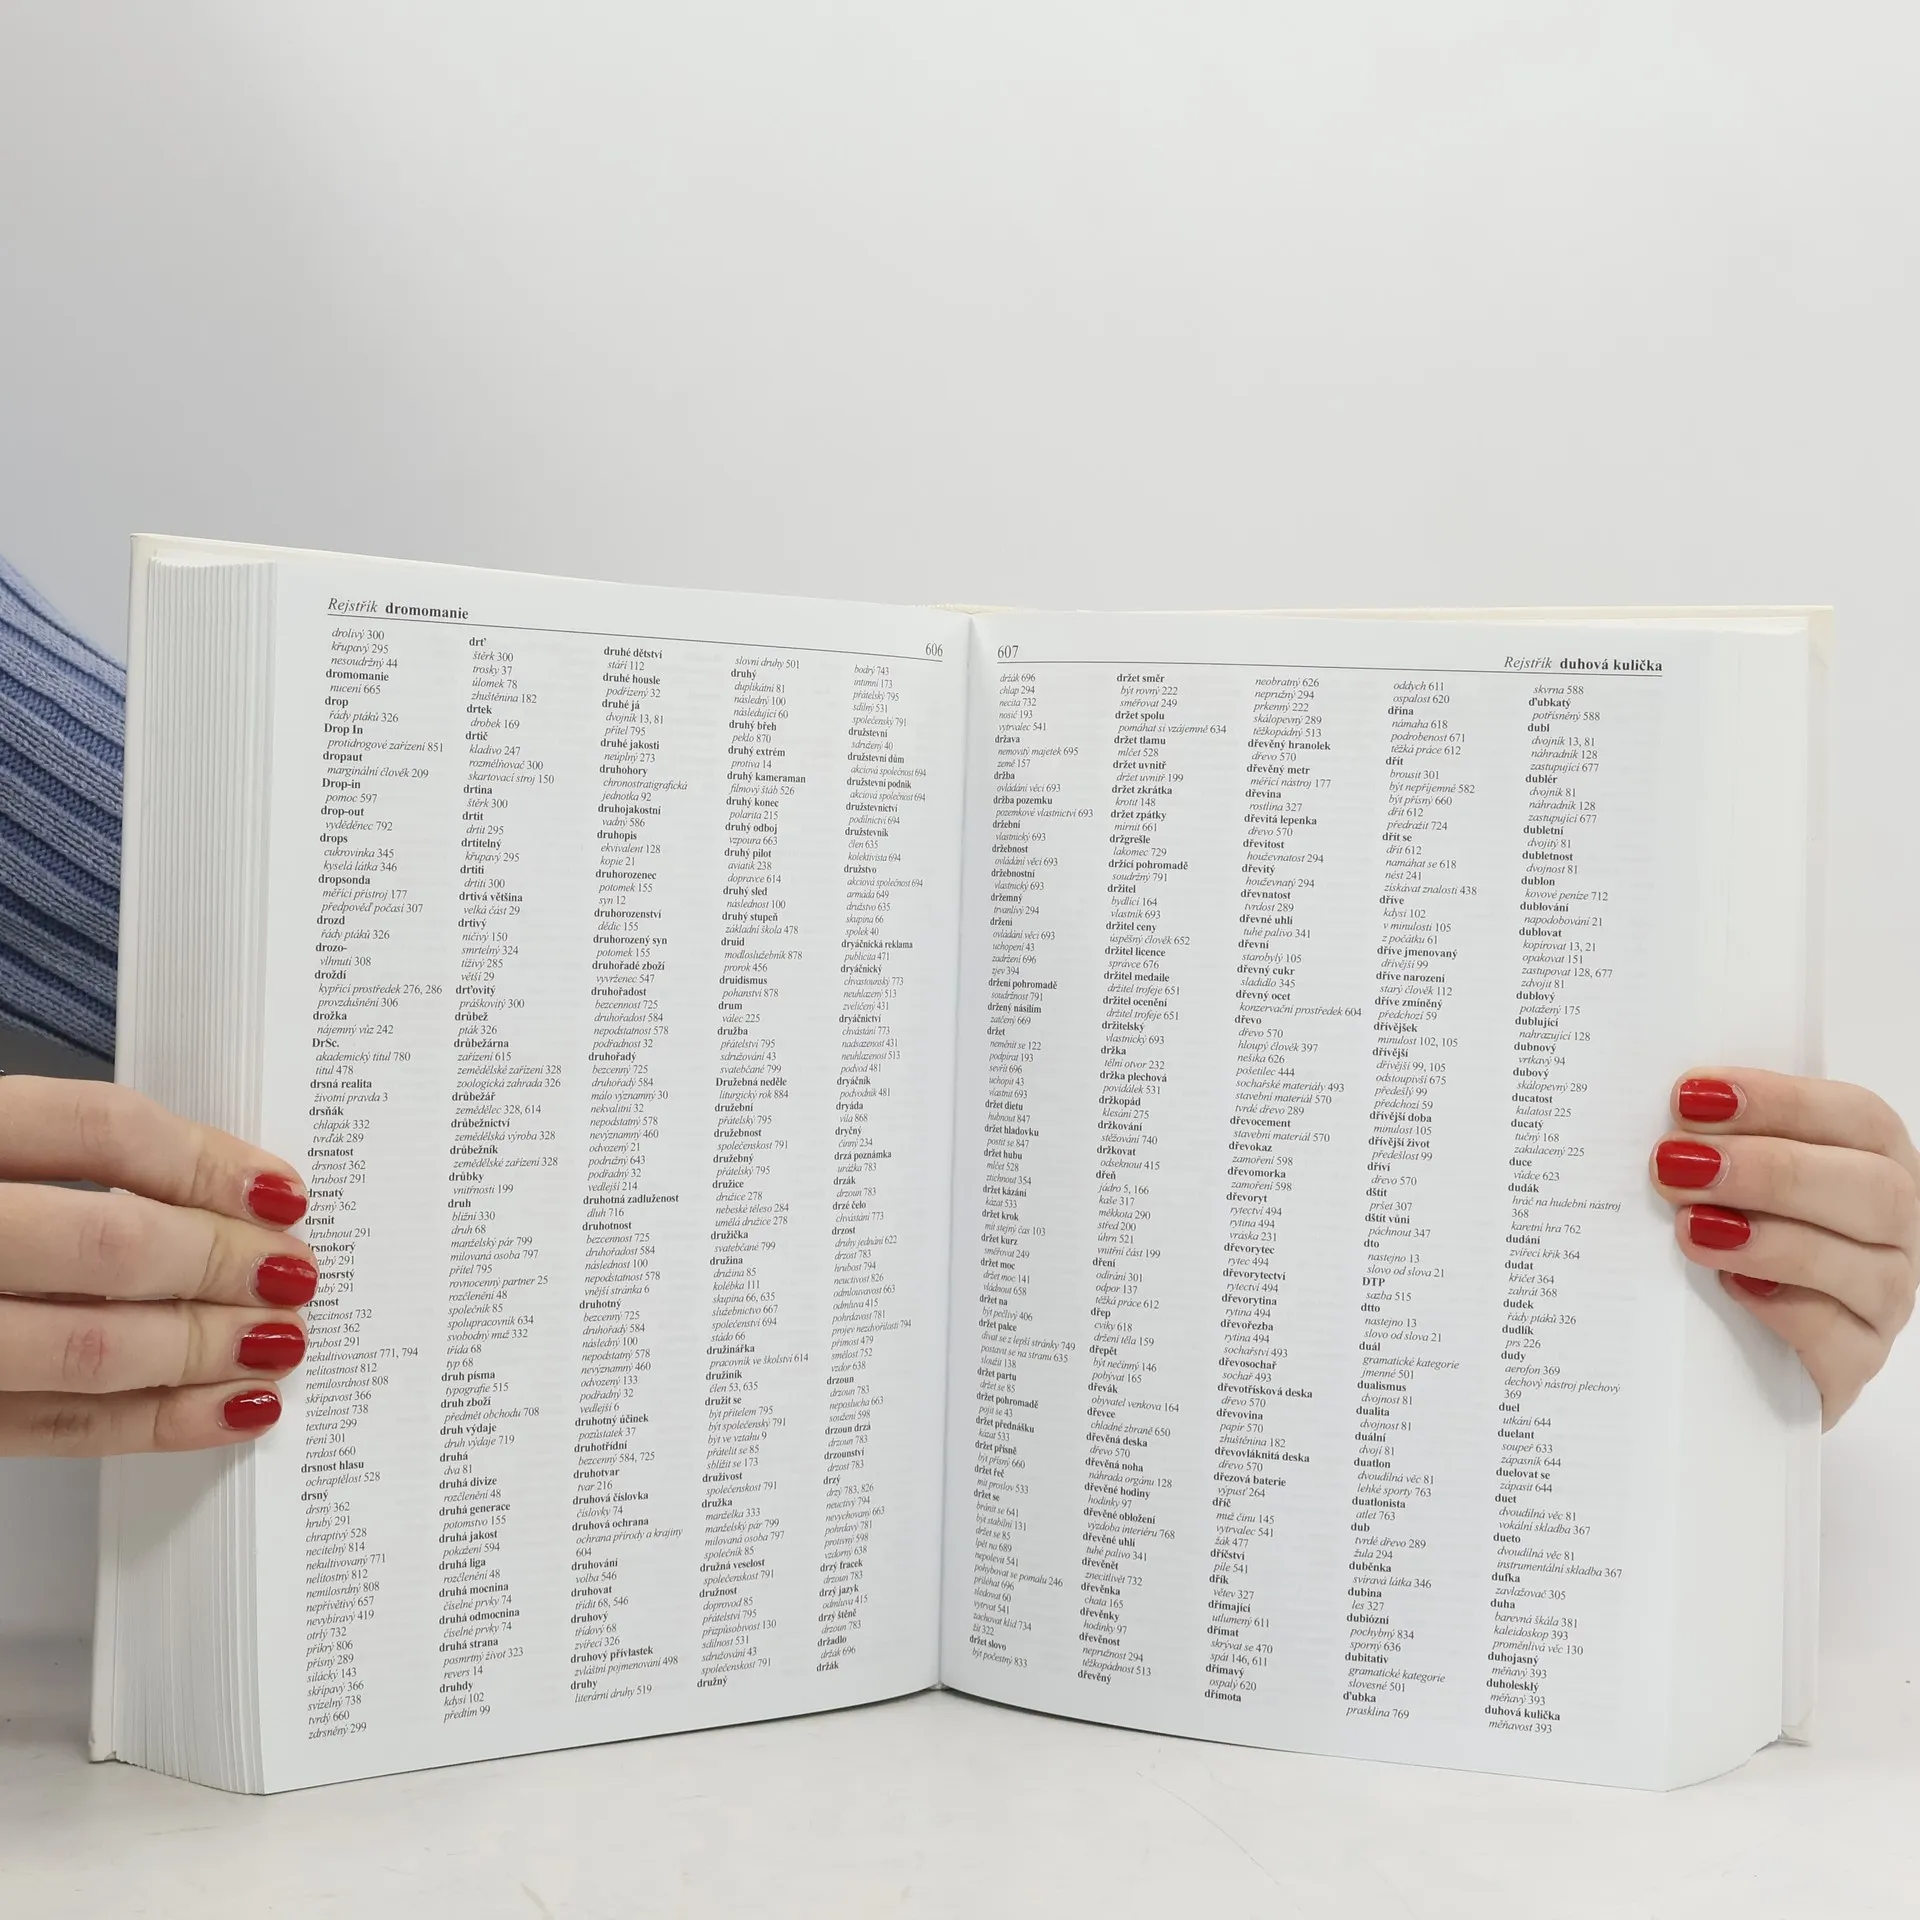 Rejstřík dromomanie
606
drolivý 300
křupavý 295
nesoudržný 44
dromomanie
nucení 665
drop
řády ptáků 326
Drop In
protidrogové zařízení 851
dropaut
marginální člověk 209
Drop-in
pomoc 597
drop-out
vyděděnec 792
drops
cukrovinka 345
kyselá látka 346
dropsonda
měřicí přístroj 177
předpověď počasí 307
drozd
řády ptáků 326
drozo-
vlhnutí 308
droždí
kypřicí prostředek 276, 286
provzdušnění 306
drožka
nájemný vůz 242
DrSc.
akademický titul 780
titul 478
drsná realita
životní pravda 3
drsňák
chlapák 332
tvrďák 289
drsnatost
drsnost 362
hrubost 291
drsnatý
drsný 362
drsnit
hrubnout 291
291
291
bezcitnost 732
drsnost 362
hrubost 291
nekultivovanost 771, 794
nelítostnost 812
nemilosrdnost 808
skřípavost 366
svízelnost 738
textura 299
tření 301
tvrdost 660
drsnost hlasu
ochraptělost 528
drsný
drsný 362
hrubý 291
chraptivý 528
necitelný 814
nekultivovaný 771
nelítostný 812
nemilosrdný 808
nepřívětivý 657
nevybíravý 419
otrlý 732
příkrý 806
přísný 289
silácký 143
skřípavý 366
svízelný 738
tvrdý 660
zdrsněný 299
drť
štěrk 300
trosky 37
úlomek 78
zhuštěnina 182
drtek
drobek 169
drtič
kladivo 247
rozmělňovač 300
skartovací stroj 150
drtina
štěrk 300
drtit
drtit 295
drtitelný
křupavý 295
drtiti
drtiti 300
drtivá většina
velká část 29
drtivý
ničivý 150
smrtelný 324
tíživý 285
větší 29
drťovitý
práškovitý 300
drůbež
pták 326
drůbežárna
zařízení 615
zemědělské zařízení 328
zoologická zahrada 326
drůbežář
zemědělec 328, 614
drůbežnictví
zemědělská výroba 328
drůbežník
zemědělské zařízení 328
drůbky
vnitřnosti 199
druh
bližní 330
druh 68
manželský pár 799
milovaná osoba 797
přítel 795
rovnocenný partner 25
rozčlenění 48
společník 85
spolupracovník 634
svobodný muž 332
třída 68
typ 68
druh písma
typografie 515
druh zboží
předmět obchodu 708
druh výdaje
druh výdaje 719
druhá
dva 81
druhá divize
rozčlenění 48
druhá generace
potomstvo 155
druhá jakost
pokažení 594
druhá liga
rozčlenění 48
druhá mocnina
číselné prvky 74
druhá odmocnina
číselné prvky 74
druhá strana
posmrtný život 323
revers 14
druhdy
kdysi 102
předtím 99
druhé dětství
stáří 112
druhé housle
podřízený 32
druhé já
dvojník 13, 81
přítel 795
druhé jakosti
neúplný 273
druhohory
chronostratigrafická
jednotka 92
druhojakostní
vadný 586
druhopis
ekvivalent 128
kopie 21
druhorozenec
potomek 155
syn 12
druhorozenství
dědic 155
druhorozený syn
potomek 155
druhořadé zboží
vyvrženec 547
druhořadost
bezcennost 725
druhořadost 584
nepodstatnost 578
podřadnost 32
druhořadý
bezcenný 725
druhořadý 584
málo významný 30
nekvalitní 32
nepodstatný 578
nevýznamný 460
odvozený 21
podružný 643
podřadný 32
vedlejší 214
druhotná zadluženost
dluh 716
druhotnost
bezcennost 725
druhořadost 584
následnost 100
nepodstatnost 578
vnější stránka 6
druhotný
bezcenný 725
druhořadý 584
následný 100
nepodstatný 578
nevýznamný 460
odvozený 133
podřadný 32
vedlejší 6
druhotný účinek
pozůstatek 37
druhotřídní
bezcenný 584, 725
druhotvar
tvar 216
druhová číslovka
číslovky 74
druhová ochrana
ochrana přírody a krajiny
604
druhování
volba 546
druhovat
třídit 68, 546
druhový
třídový 68
zvířecí 326
druhový přívlastek
zvláštní pojmenování 498
druhy
literární druhy 519
slovní druhy 501
druhý
duplikátní 81
následný 100
následující 60
druhý břeh
peklo 870
druhý extrém
protiva 14
druhý kameraman
filmový štáb 526
druhý konec
polarita 215
druhý odboj
vzpoura 663
druhý pilot
aviatik 238
dopravce 614
druhý sled
následnost 100
druhý stupeň
základní škola 478
druid
modloslužebník 878
prorok 456
druidismus
pohanství 878
drum
válec 225
družba
přátelství 795
sdružování 43
svatebčané 799
Družebná neděle
liturgický rok 884
družební
přátelský 795
družebnost
společenskost 791
družebný
přátelský 795
družice
družice 278
nebeské těleso 284
umělá družice 278
družička
svatebčané 799
družina
družina 85
kolébka 111
skupina 66, 635
služebnictvo 667
společenství 694
stádo 66
družinářka
pracovník ve školství 614
družiník
člen 53, 635
družit se
být přítelem 795
být společenský 791
být ve vztahu 9
přátelit se 85
sblížit se 173
druživost
společenskost 791
družka
manželka 333
manželský pár 799
milovaná osoba 797
společník 85
družná veselost
společenskost 791
družnost
doprovod 85
přátelství 795
přizpůsobivost 130
sdílnost 531
sdružování 43
společenskost 791
družný
bodrý 743
intimní 173
přátelský 795
sdílný 531
společenský 791
družstevní
sdružený 40
družstevní dům
akciová společnost 694
družstevní podnik
akciová společnost 694
družstevnictví
podílnictví 694
družstevník
člen 635
kolektivista 694
družstvo
akciová společnost 694
armáda 649
družstvo 635
skupina 66
spolek 40
dryáčnická reklama
publicita 471
dryáčnický
chvastounský 773
neuhlazený 513
zveličený 431
dryáčnictví
chvástání 773
nadsazenost 431
neuhlazenost 513
podvod 481
dryáčník
podvodník 481
dryáda
víla 868
dryčný
činný 234
drzá poznámka
urážka 783
drzák
drzoun 783
drzé čelo
chvástání 773
drzost
druhy jednání 622
drzost 783
hrubost 794
neuctivost 826
odmlouvavost 663
odmluva 415
pohrdavost 781
projev nezdvořilosti 794
přímost 479
smělost 752
vzdor 638
drzoun
drzoun 783
neposlucha 663
soužení 598
drzoun drzá
drzoun 783
drzounství
drzost 783
drzý
drzý 783, 826
neuctivý 794
nevychovaný 663
pohrdavý 781
protivný 598
vzdorný 638
drzý fracek
drzoun 783
drzý jazyk
odmluva 415
drzý štěně
drzoun 783
držadlo
držák 696
držák
607
Rejstřík duhová kulička
držák 696
chlap 294
necita 732
nosič 193
vytrvalec 541
država
nemovitý majetek 695
země 157
držba
ovládání věcí 693
držba pozemku
pozemkové vlastnictví 693
držební
vlastnický 693
držebnost
ovládání věcí 693
držebnostní
vlastnický 693
držemný
trvanlivý 294
držení
ovládání věcí 693
uchopení 43
zadržení 696
zjev 394
držení pohromadě
soudržnost 791
držený násilím
zatčený 669
držet
neměnit se 122
podpírat 193
sevřít 696
uchopit 43
vlastnit 693
držet dietu
hubnout 847
držet hladovku
postit se 847
držet hubu
mlčet 528
ztichnout 354
držet kázání
kázat 533
držet krok
mít stejný čas 103
držet kurz
směřovat 249
držet moc
držet moc 141
vládnout 658
držet na
být pečlivý 406
držet palce
dívat se z lepší stránky 749
postavit se na stranu 635
sloužit 138
držet partu
držet se 85
držet pohromadě
pojit se 43
držet přednášku
kázat 533
držet přísně
být přísný 660
držet řeč
mít proslov 533
držet se
bránit se 641
být stabilní 131
držet se 85
lpět na 689
nepolevit 541
pohybovat se pomalu 246
přiléhat 696
sledovat 60
vytrvat 541
zachovat klid 734
žít 322
držet slovo
být počestný 833
držet směr
být rovný 222
směřovat 249
držet spolu
pomáhat si vzájemně 634
držet tlamu
mlčet 528
držet uvnitř
držet uvnitř 199
držet zkrátka
krotit 148
držet zpátky
mírnit 661
držgrešle
lakomec 729
držící pohromadě
soudržný 791
držitel
bydlící 164
vlastník 693
držitel ceny
úspěšný člověk 652
držitel licence
správce 676
držitel medaile
držitel trofeje 651
držitel ocenění
držitel trofeje 651
držitelský
vlastnický 693
držka
tělní otvor 232
držka plechová
povídálek 531
držkopád
klesání 275
držkování
stěžování 740
držkovat
odseknout 415
dřeň
jádro 5, 166
kaše 317
měkkota 290
střed 200
úhrn 521
vnitřní část 199
dření
odírání 301
odpor 137
těžká práce 612
dřep
cviky 618
držení těla 159
dřepět
být nečinný 146
pobývat 165
dřevák
obyvatel venkova 164
dřevce
chladné zbraně 650
dřevěná deska
dřevo 570
dřevěná noha
náhrada orgánu 128
dřevěné hodiny
hodinky 97
dřevěné obložení
výzdoba interiéru 768
dřevěné uhlí
tuhé palivo 341
dřevěnět
znecitlivět 732
dřevěnka
chata 165
dřevěnky
hodinky 97
dřevěnost
nepružnost 294
těžkopádnost 513
dřevěný
neobratný 626
nepružný 294
prkenný 222
skálopevný 289
těžkopádný 513
dřevěný hranolek
dřevo 570
dřevěný metr
měřicí nástroj 177
dřevina
rostlina 327
dřevitá lepenka
dřevo 570
dřevitost
houževnatost 294
dřevitý
houževnatý 294
dřevnatost
tvrdost 289
dřevné uhlí
tuhé palivo 341
dřevní
starobylý 105
dřevný cukr
sladidlo 345
dřevný ocet
konzervační prostředek 604
dřevo
dřevo 570
hloupý člověk 397
nešika 626
pošetilec 444
sochařské materiály 493
stavební materiál 570
tvrdé dřevo 289
dřevocement
stavební materiál 570
dřevokaz
zamoření 598
dřevomorka
zamoření 598
dřevoryt
rytectví 494
rytina 494
vráska 231
dřevorytec
rytec 494
dřevorytectví
rytectví 494
dřevorytina
rytina 494
dřevořezba
rytina 494
sochařství 493
dřevosochař
sochař 493
dřevotřísková deska
dřevo 570
dřevovina
papír 570
zhuštěnina 182
dřevovláknitá deska
dřevo 570
dřezová baterie
výpusť 264
dříč
muž činu 145
vytrvalec 541
žák 477
dříčství
píle 541
dřík
větev 327
dřímající
utlumený 611
dřímat
skrývat se 470
spát 146, 611
dřímavý
ospalý 620
dřímota
oddych 611
ospalost 620
dřina
námaha 618
podrobenost 671
těžká práce 612
dřít
brousit 301
být nepříjemné 582
být přísný 660
dřít 612
předražit 724
dřít se
dřít 612
namáhat se 618
nést 241
získávat znalosti 438
dříve
kdysi 102
v minulosti 105
z počátku 61
dříve jmenovaný
dřívější 99
dříve narození
starý člověk 112
dříve zmíněný
předchozí 59
dřívějšek
minulost 102, 105
dřívější
dřívější 99, 105
odstoupivší 675
předešlý 99
předchozí 59
dřívější doba
minulost 105
dřívější život
předešlost 99
dříví
dřevo 570
dštít
pršet 307
dštít vůni
páchnout 347
dto
nastejno 13
slovo od slova 21
DTP
sazba 515
dtto
nastejno 13
slovo od slova 21
duál
gramatické kategorie
jmenné 501
dualismus
dvojnost 81
dualita
dvojnost 81
duální
dvojí 81
duatlon
dvoudílná věc 81
lehké sporty 763
duatlonista
atlet 763
dub
tvrdé dřevo 289
žula 294
duběnka
svíravá látka 346
dubina
les 327
dubiózní
pochybný 834
sporný 636
dubitativ
gramatické kategorie
slovesné 501
ďubka
prasklina 769
skvrna 588
ďubkatý
potřísněný 588
dubl
dvojník 13, 81
náhradník 128
zastupující 677
dublér
dvojník 81
náhradník 128
zastupující 677
dubletní
dvojitý 81
dubletnost
dvojnost 81
dublon
kovové peníze 712
dublování
napodobování 21
dublovat
kopírovat 13, 21
opakovat 151
zastupovat 128, 677
zdvojit 81
dublový
potažený 175
dublující
nahrazující 128
dubnový
vrtkavý 94
dubový
skálopevný 289
ducatost
kulatost 225
ducatý
tučný 168
zakulacený 225
duce
vůdce 623
dudák
hráč na hudební nástroj
368
karetní hra 762
dudání
zvířecí křik 364
dudat
křičet 364
zahrát 368
dudek
řády ptáků 326
dudlík
prs 226
dudy
aerofon 369
dechový nástroj plechový
369
duel
utkání 644
duelant
soupeř 633
zápasník 644
duelovat se
zápasit 644
duet
dvoudílná věc 81
vokální skladba 367
dueto
dvoudílná věc 81
instrumentální skladba 367
dufka
zavlažovač 305
duha
barevná škála 381
kaleidoskop 393
proměnlivá věc 130
duhojasný
měňavý 393
duholesklý
měňavý 393
duhová kulička
měňavost 393